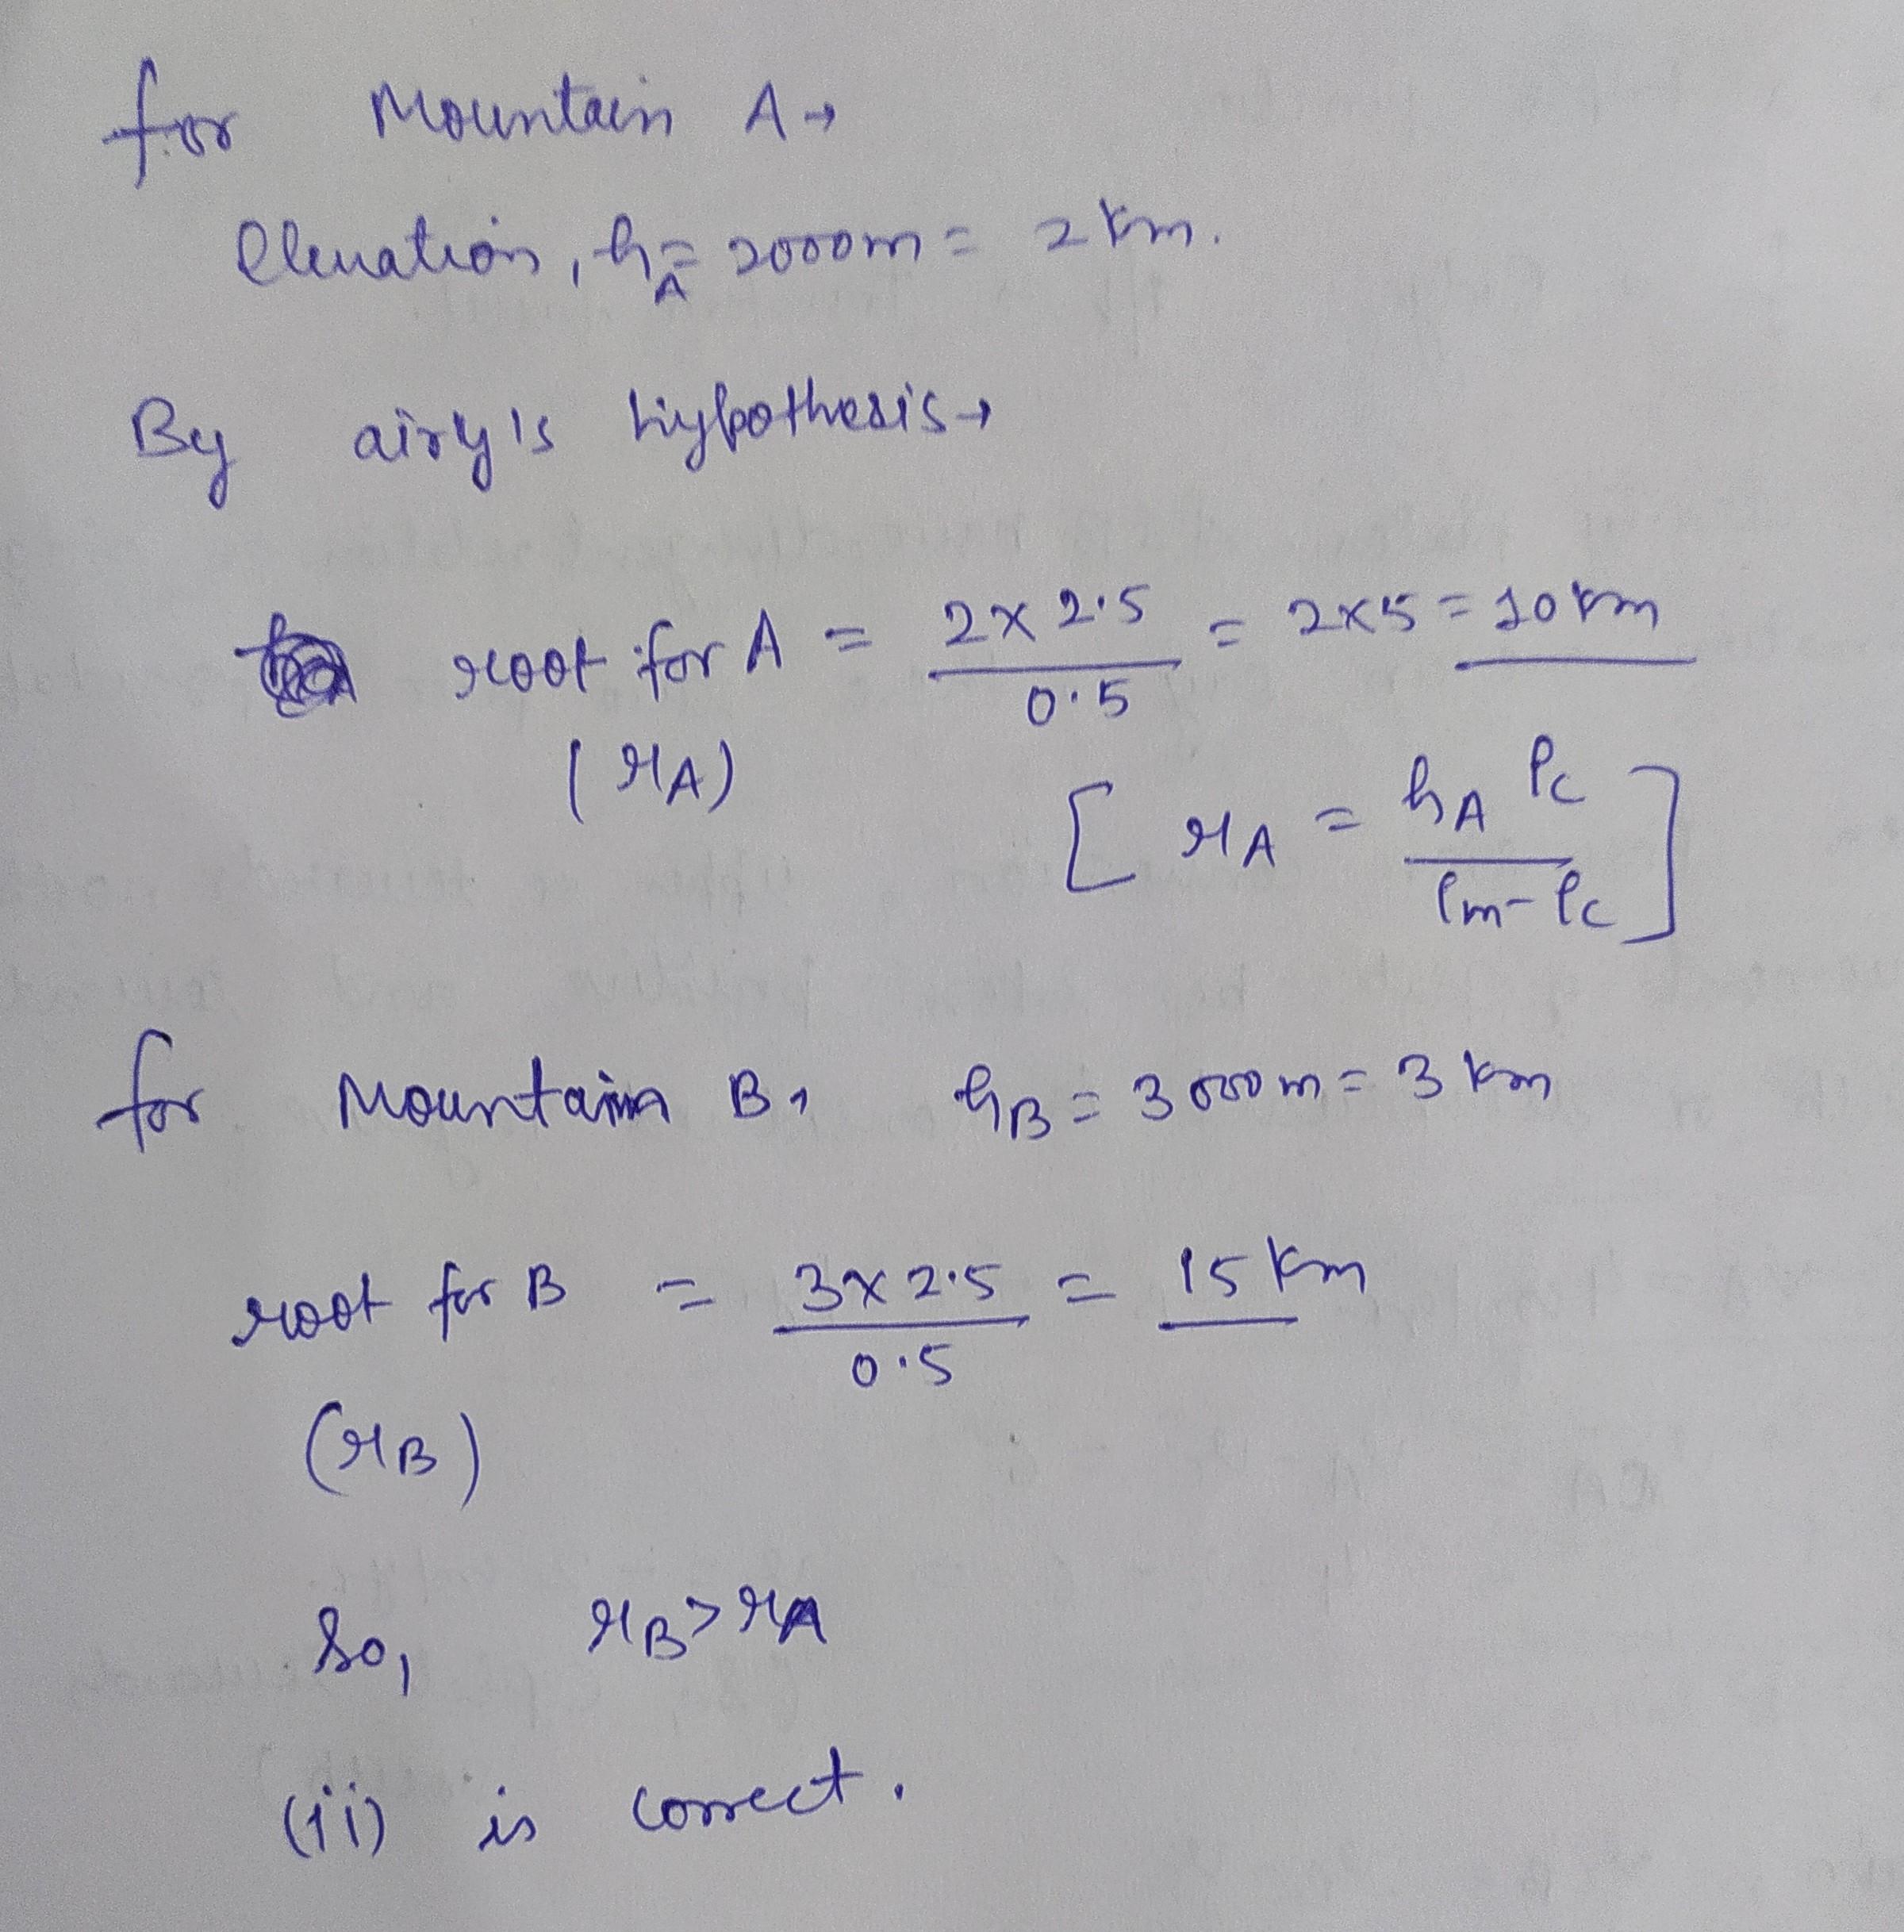 for Mountain A→
Elevation, h_A = 2000m = 2 km.
By airy's hypothesis→
root for A = 2×2.5/0.5 = 2×5 = 10 km
(r_A)
[ r_A = h_A ρc/ρm-ρc ]
for Mountain B, h_B = 3000m = 3 km
root for B = 3×2.5/0.5 = 15 km
(r_B)
So, r_B > r_A
(ii) is correct.